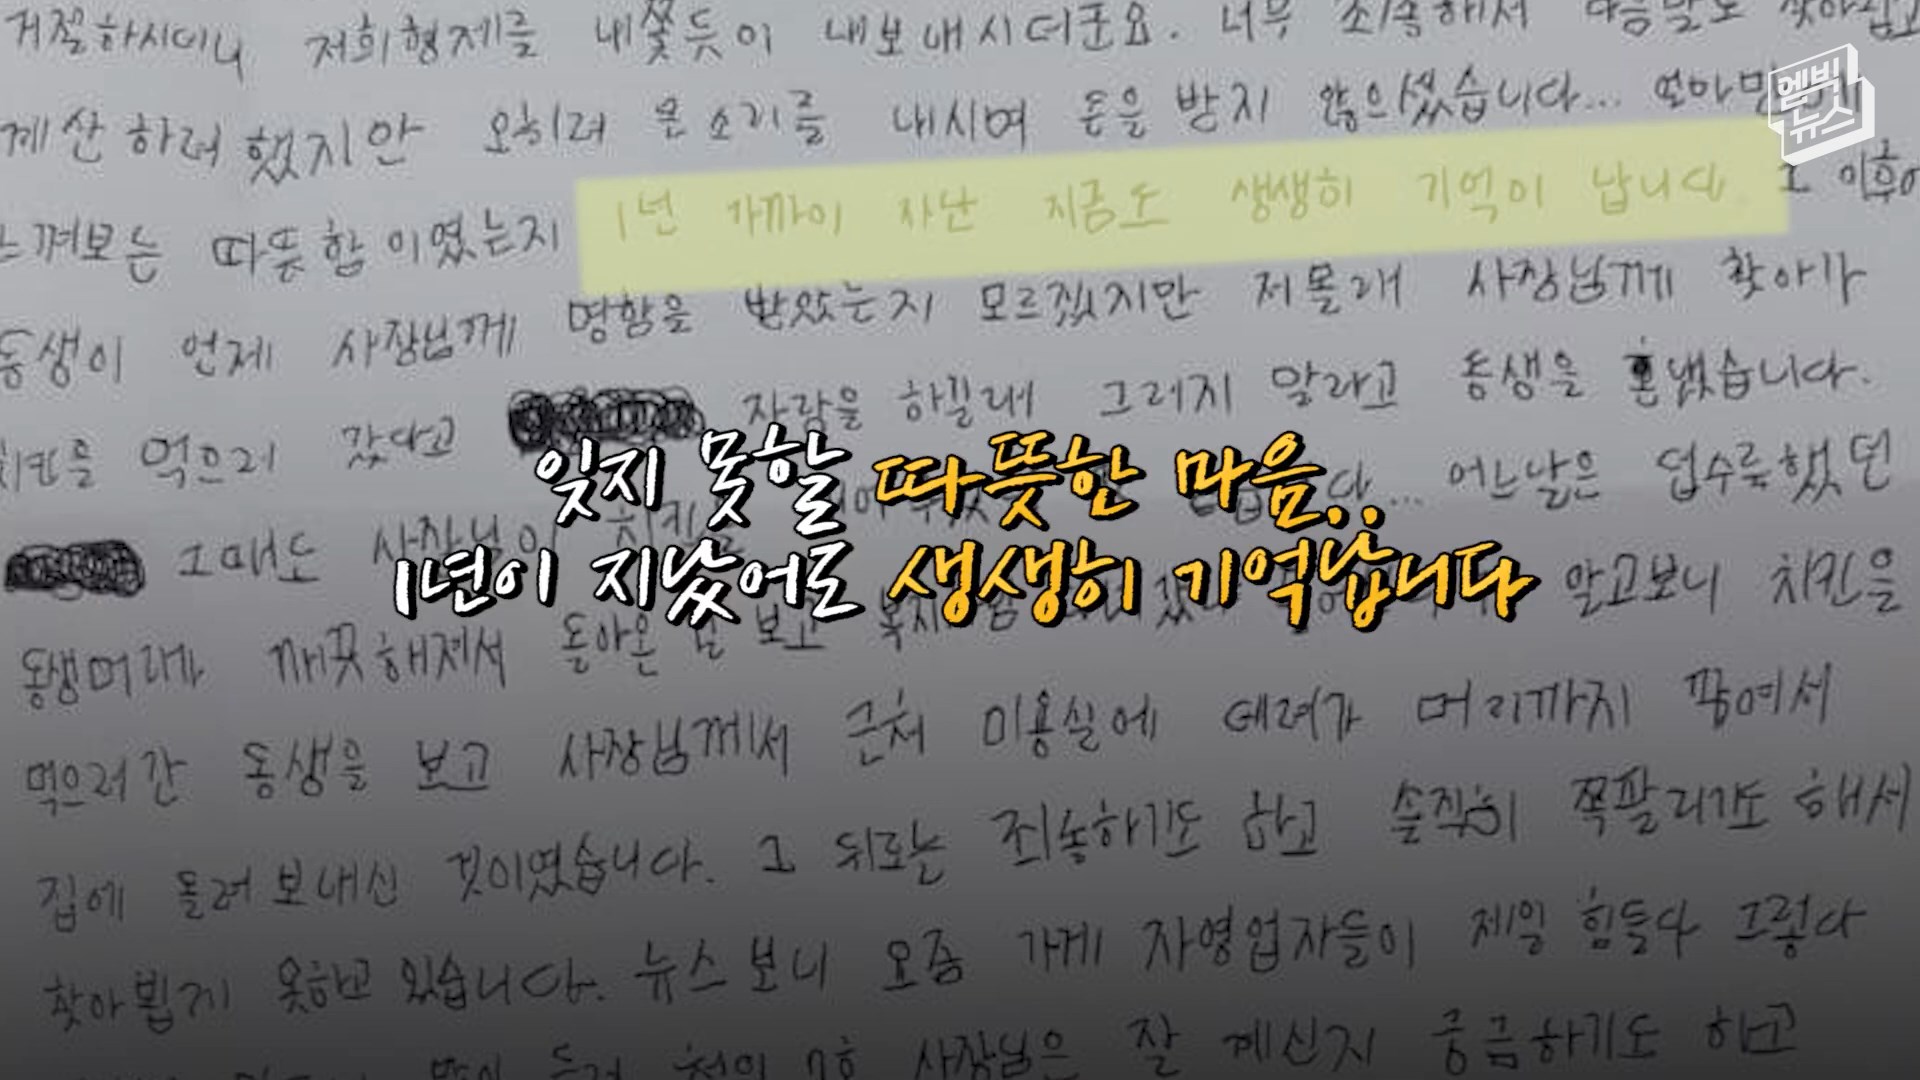 거절하시더니 저희형제를 내쫓듯이 내보내시더군요. 너무 죄송해서 다음날도 찾아뵙고
계산하려 했지만 오히려 큰소리를 내시며 돈을 받지 않으셨습니다...
엠빅
뉴스
느껴보는 따뜻함이였는지 1년 가까이 지난 지금도 생생히 기억이 납니다. 그 이후에
동생이 언제 사장님께 명함을 받았는지 모르겠지만 저몰래 사장님께 찾아가
치킨을 먹으러 갔다고 자랑을 하길래 그러지 말라고 동생을 혼냈습니다.
그때도 사장님이 치킨을 어느날은 덥수룩했던
잊지 못할 따뜻한 마음..
1년이 지났어도 생생히 기억납니다
동생머리가 깨끗해져서 돌아온 걸 보고 알고보니 치킨을
먹으러간 동생을 보고 사장님께서 근처 미용실에 데려가 머리까지 깎여서
집에 돌려보내신 것이였습니다. 그 뒤로는 죄송하기도 하고 솔직히 쪽팔리기도 해서
찾아뵙게 못하고 있습니다. 뉴스보니 요즘 가게 자영업자들이 제일 힘들다 그렇다
사장님은 잘 계신지 궁금하기도 하고